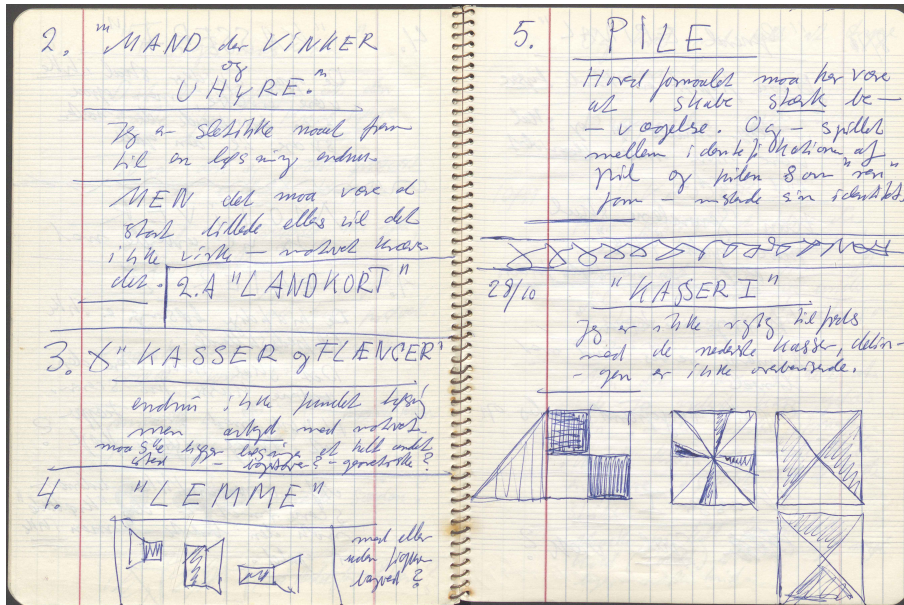 2. "MAND der VINKER
og
UHYRE."
Jeg er slet ikke naaet frem
til en løsning endnu.
MEN det maa være et
stort billede ellers vil det
ikke virke — motivet kræver
det.
2.A "LANDKORT"
3. "KASSER og FLÆNGER"
endnu ikke fundet løsning
men arbejd med motivet.
maaske ligger løsning et helt andet
sted — — geometriske?
4. "LEMME"
med eller
uden figurer
bagved?
5. PILE
Hovedformaalet maa her være
at skabe stærk be-
- vægelse. Og — spillet
mellem identifikationen af
pil og pilen som "ren"
form — mistede sin identitet.
28/10 "KASSER I"
Jeg er ikke rigtig tilfreds
med de nederste kasser, delin-
- gen er ikke overbevisende.